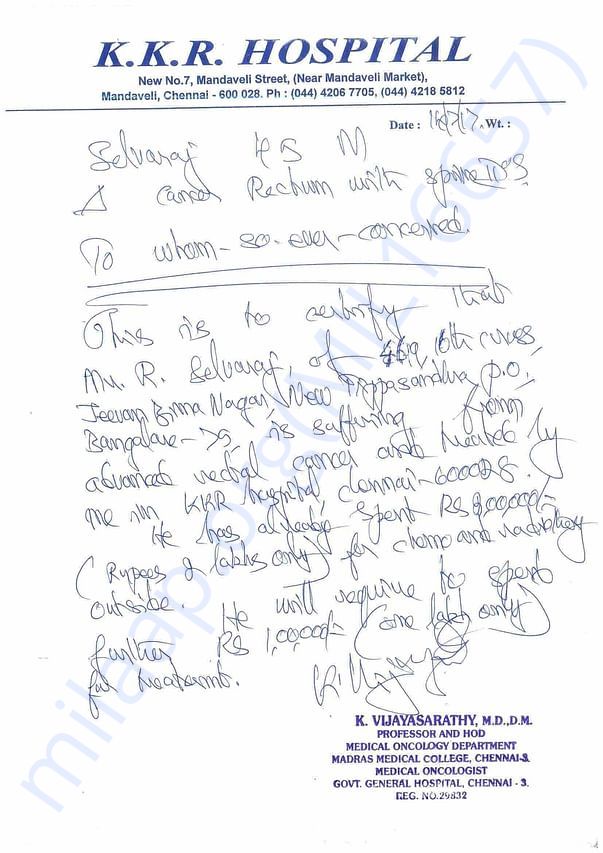 K.K.R. HOSPITAL
New No.7, Mandaveli Street, (Near Mandaveli Market),
Mandaveli, Chennai - 600 028. Ph : (044) 4206 7705, (044) 4218 5812
Date : Wt. :
Selvaraj 45 M
Δ Cancer Rectum with
To whom-so-ever-concerned.
This is to certify that
Mr. R. Selvaraj, of 16th cross,
Jeevan Bima Nagar, New Tippasandra P.O.
Bangalore - 75, is suffering from
advanced rectal cancer and treated by
me in KKR hospital, chennai-600028.
He has already spent Rs 200000/-
(Rupees 2 lakhs only) for chemo and radiotherapy
outside. He will require to spent
further Rs 1,00000/- (one lakh only)
for treatment.
K. VIJAYASARATHY, M.D.,D.M.
PROFESSOR AND HOD
MEDICAL ONCOLOGY DEPARTMENT
MADRAS MEDICAL COLLEGE, CHENNAI-3.
MEDICAL ONCOLOGIST
GOVT. GENERAL HOSPITAL, CHENNAI - 3.
REG. NO.29832
milaap.org(MIL16657)